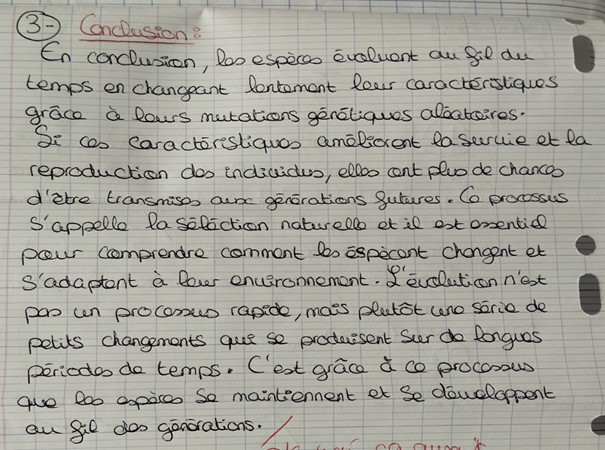 3- Conclusion :
En conclusion, les espèces évoluent au fil du
temps en changeant lentement leur caractéristiques
grâce à leurs mutations génétiques aléatoires.
Si ces caractéristiques améliorent la survie et la
reproduction des individus, elles ont plus de chances
d'être transmises aux générations futures. Ce processus
s'appelle la sélection naturelle et il est essentiel
pour comprendre comment les éspècent changent et
s'adaptent à leur environnement. L'évolution n'est
pas un processus rapide, mais plutôt une série de
petits changements qui se produisent sur de longues
périodes de temps. C'est grâce à ce processus
que les espèces se maintiennent et se développent
au fil des générations.